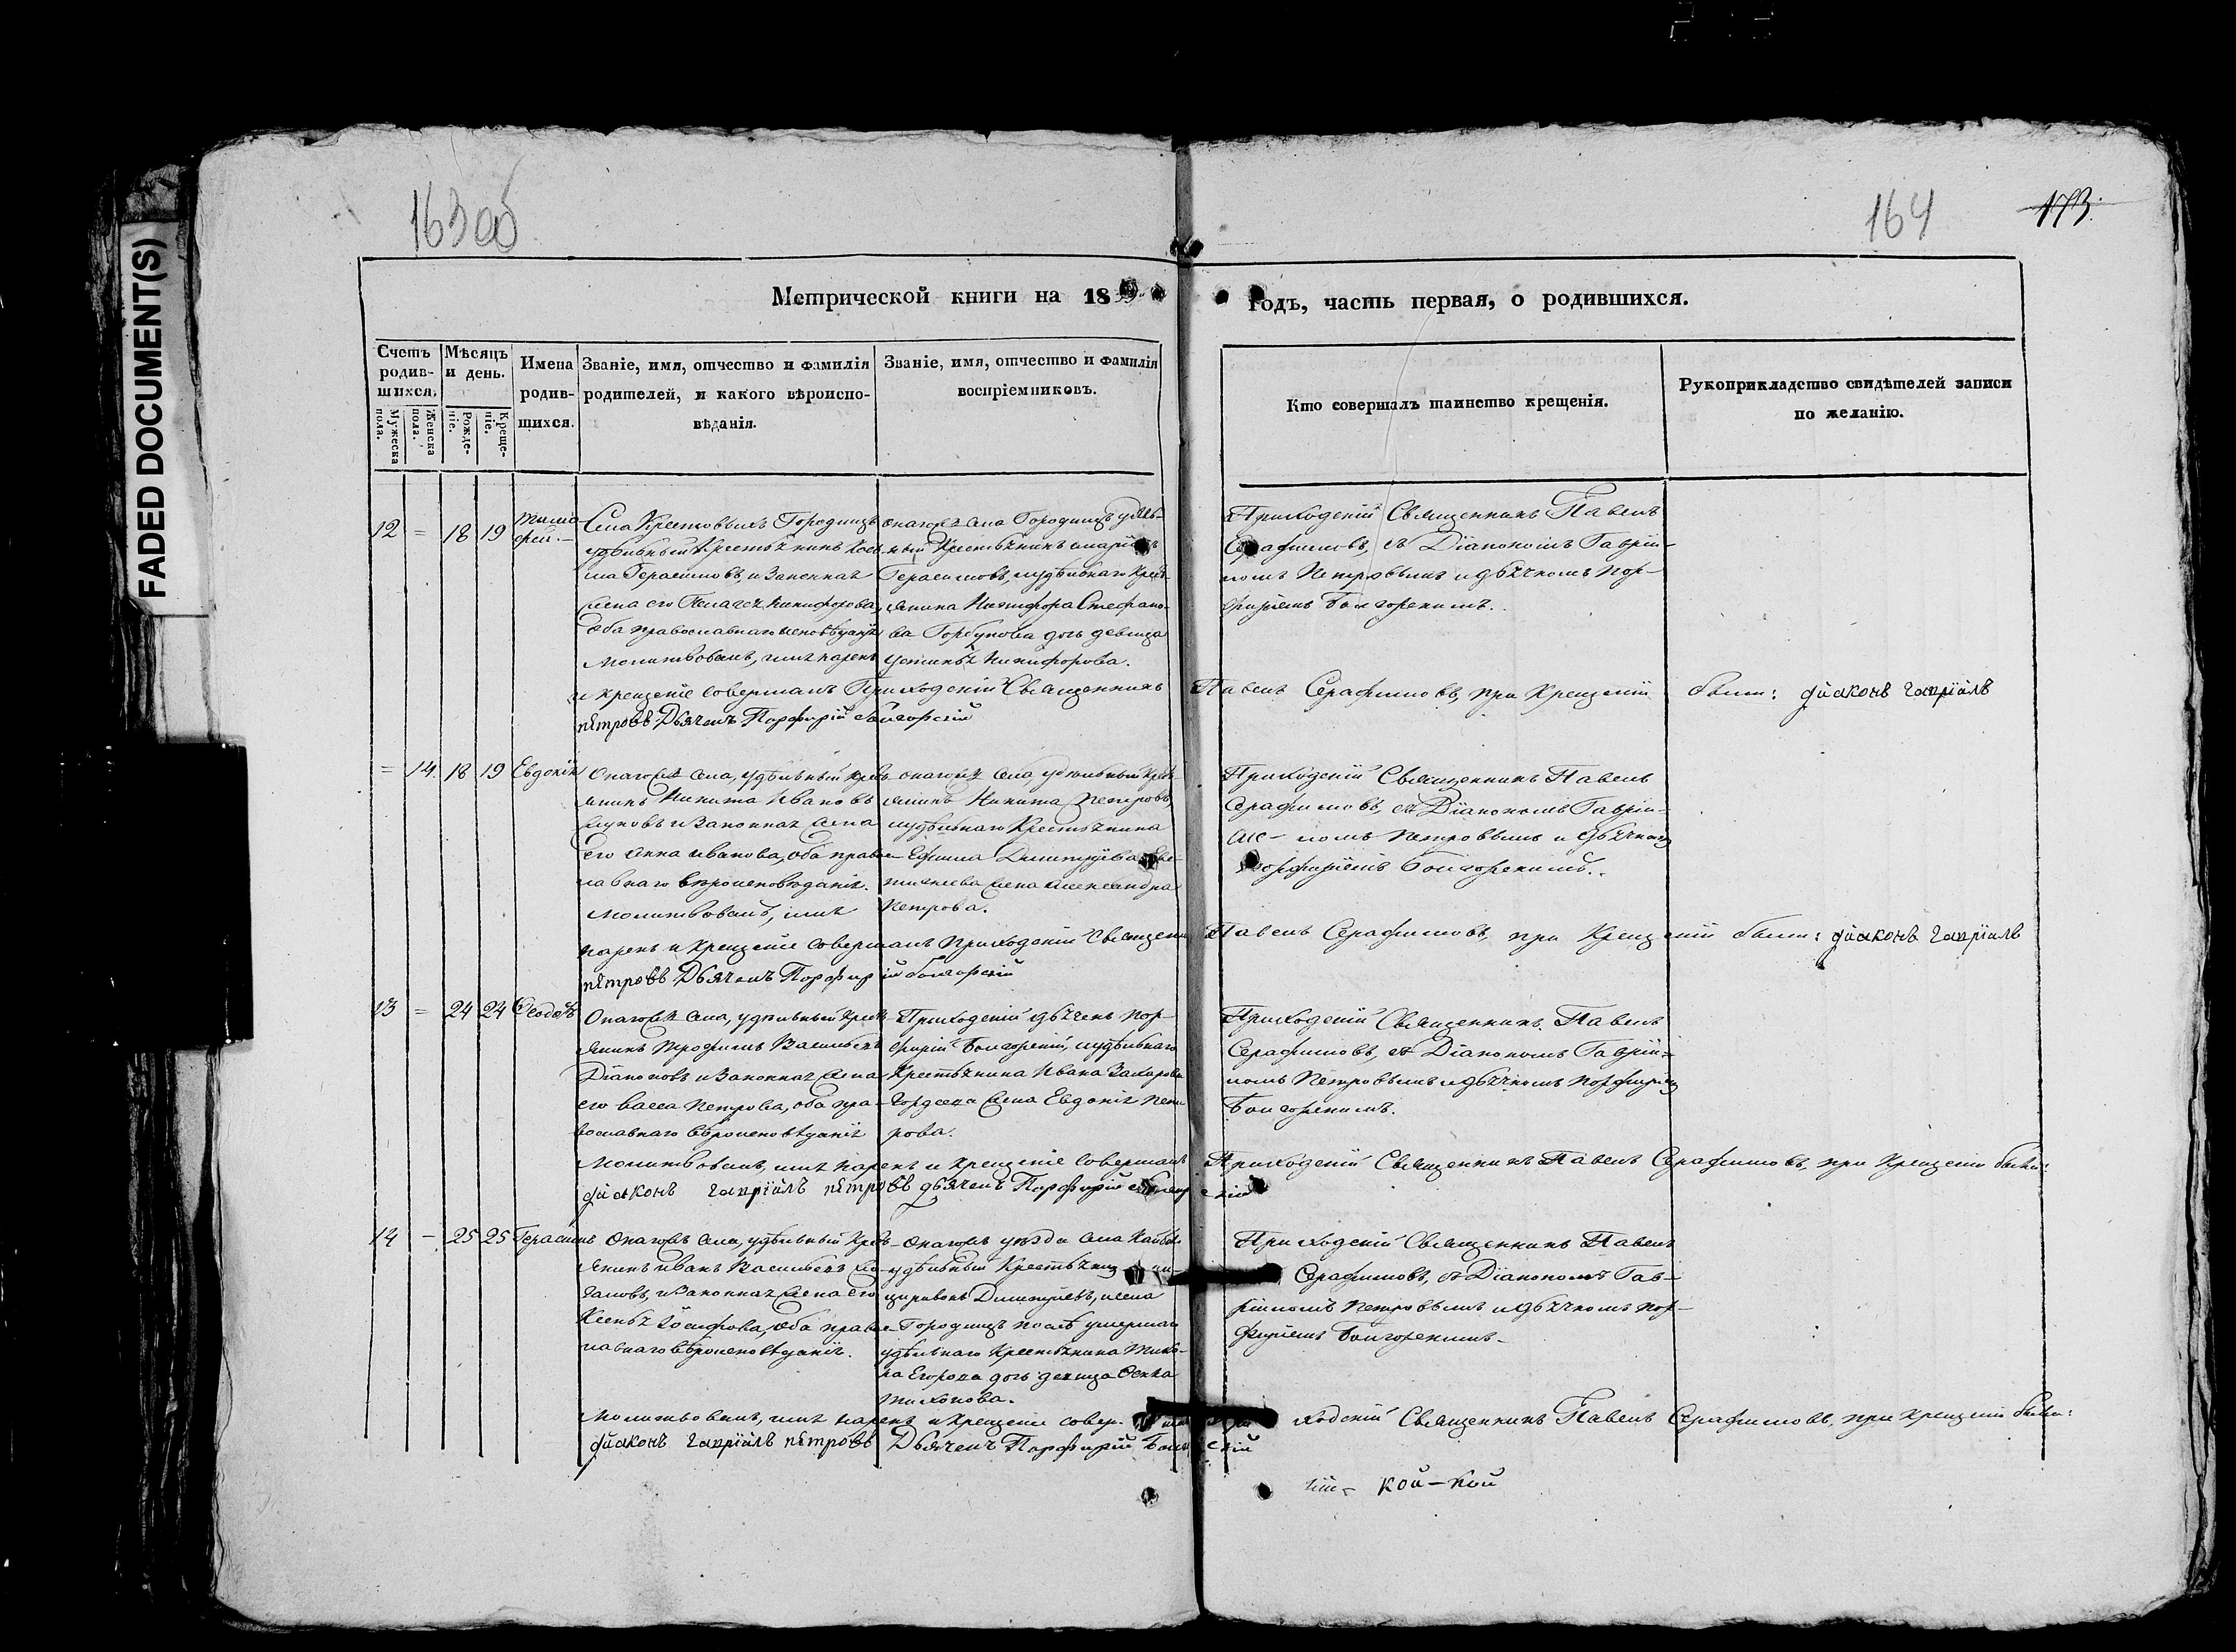 FADED DOCUMENT(S)
163 об
164
173.
Метрической книги на 18
Годъ, часть первая, о родившихся.
Счетъ родив-шихся.
Мужеска пола.
Женска пола.
Мѣсяцъ и день.
Рожде-ніе.
Креще-ніе.
Имена родив-шихся.
Званіе, имя, отчество и фамилія
родителей, и какого вѣроиспо-
вѣданія.
Званіе, имя, отчество и фамилія
воспріемниковъ.
Кто совершалъ таинство крещенія.
Рукоприкладство свидѣтелей записи
по желанію.
12 = 18 19 Тимо-
фей. –
Села Крестовыхъ Городищъ
удѣльный Крестьянинъ
ма Герасимовъ, и Законная
Жена его Пелагея Никифорова,
оба православнаго исповѣданія
Молитвовалъ, имя нарекъ
онагожъ села Городищъ удѣль-
ный Крестьянинъ
Герасимовъ, и удѣльнаго Крест-
янина Никифора Стефано-
ва Горбунова дочь девица
Устинья Никифорова.
Приходскій Священникъ Павелъ
Серафимовъ, съ Діакономъ Гаврі-
ломъ Петровымъ и дьячкомъ Пор-
фиріемъ Болгорскимъ.
и крещеніе совершалъ Приходскій Священникъ Павелъ Серафимовъ, при Крещеніи были: діаконъ гавріилъ
пѣтровъ Дьячекъ Порфирій Болгорскій
= 14. 18 19 Евдокія
Онагожъ села, удѣльный крест-
янинъ Никита Ивановъ
и Законная Жена
его Анна Иванова, оба право-
лавнаго вѣроисповѣданія.
Молитвовалъ, имя
онагожъ села, удѣльный Крест-
янинъ Никита Петровъ,
и удѣльнаго Крестьянина
Ефима Димитріева
Жена Александра
Петрова.
Приходскій Священникъ Павелъ
Серафимовъ, съ Діакономъ Гаврі-
ломъ Петровымъ и дьячкомъ
Порфиріемъ Болгорскимъ.
нарекъ и крещеніе совершалъ Приходскій Священникъ Павелъ Серафимовъ, при Крещеніи были: діаконъ гавріилъ
пѣтровъ Дьячекъ Порфирій Болгорскій
13 = 24 24 Ѳеодотъ
Онагожъ села, удѣльный крест-
янинъ Трофимъ Васильевъ
Діаконовъ и Законная Жена
его Васса Петрова, оба пра-
вославнаго вѣроисповѣданія
Приходскій дьячекъ Пор-
фирій Болгорскій, и удѣльнаго
Крестьянина Ивана Захарова
Гордеева Жена Евдокія Пет-
рова.
Приходскій Священникъ Павелъ
Серафимовъ, съ Діакономъ Гаврі-
ломъ Петровымъ и дьячкомъ Порфиріемъ
Болгорскимъ.
Молитвовалъ, имя нарекъ и крещеніе совершалъ Приходскій Священникъ Павелъ Серафимовъ, при Крещеніи были:
діаконъ гавріилъ пѣтровъ дьячекъ Порфирій Болгорскій
14 – 25 25 Герасимъ
Онагожъ села, удѣльный Крест-
янинъ Иванъ Васильевъ
и Законная Жена его
Ксенья Іосифова, оба право-
лавнаго вѣроисповѣданія.
Онагожъ уезда села
удѣльный Крестьянинъ
Димитріевъ, и села
Городищъ послѣ умершаго
удѣльнаго Крестьянина Тихо-
на Егорова дочь девица Ѳекла
Тихонова.
Приходскій Священникъ Павелъ
Серафимовъ, съ Діакономъ Гав-
ріиломъ Петровымъ и дьячкомъ Пор-
фиріемъ Болгорскимъ
Молитвовалъ, имя нарекъ и крещеніе Приходскій Священникъ Павелъ Серафимовъ, при Крещеніи были:
діаконъ гавріилъ пѣтровъ Дьячекъ Порфирій Болгорскій